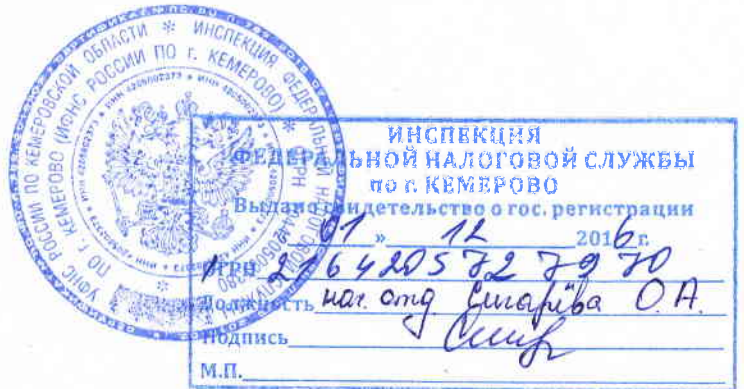 УФНС РОССИИ ПО КЕМЕРОВСКОЙ ОБЛАСТИ * ИНСПЕКЦИЯ ФЕДЕРАЛЬНОЙ НАЛОГОВОЙ
ПО Г. КЕМЕРОВО (ИФНС РОССИИ ПО г. КЕМЕРОВО) * ОГРН
ИНСПЕКЦИЯ
ФЕДЕРАЛЬНОЙ НАЛОГОВОЙ СЛУЖБЫ
по г. КЕМЕРОВО
Выдано свидетельство о гос. регистрации
01 » 12 2016 г.
ОГРН 2164205727970
Должность нач. отд Сигарёва О.А.
Подпись
М.П.